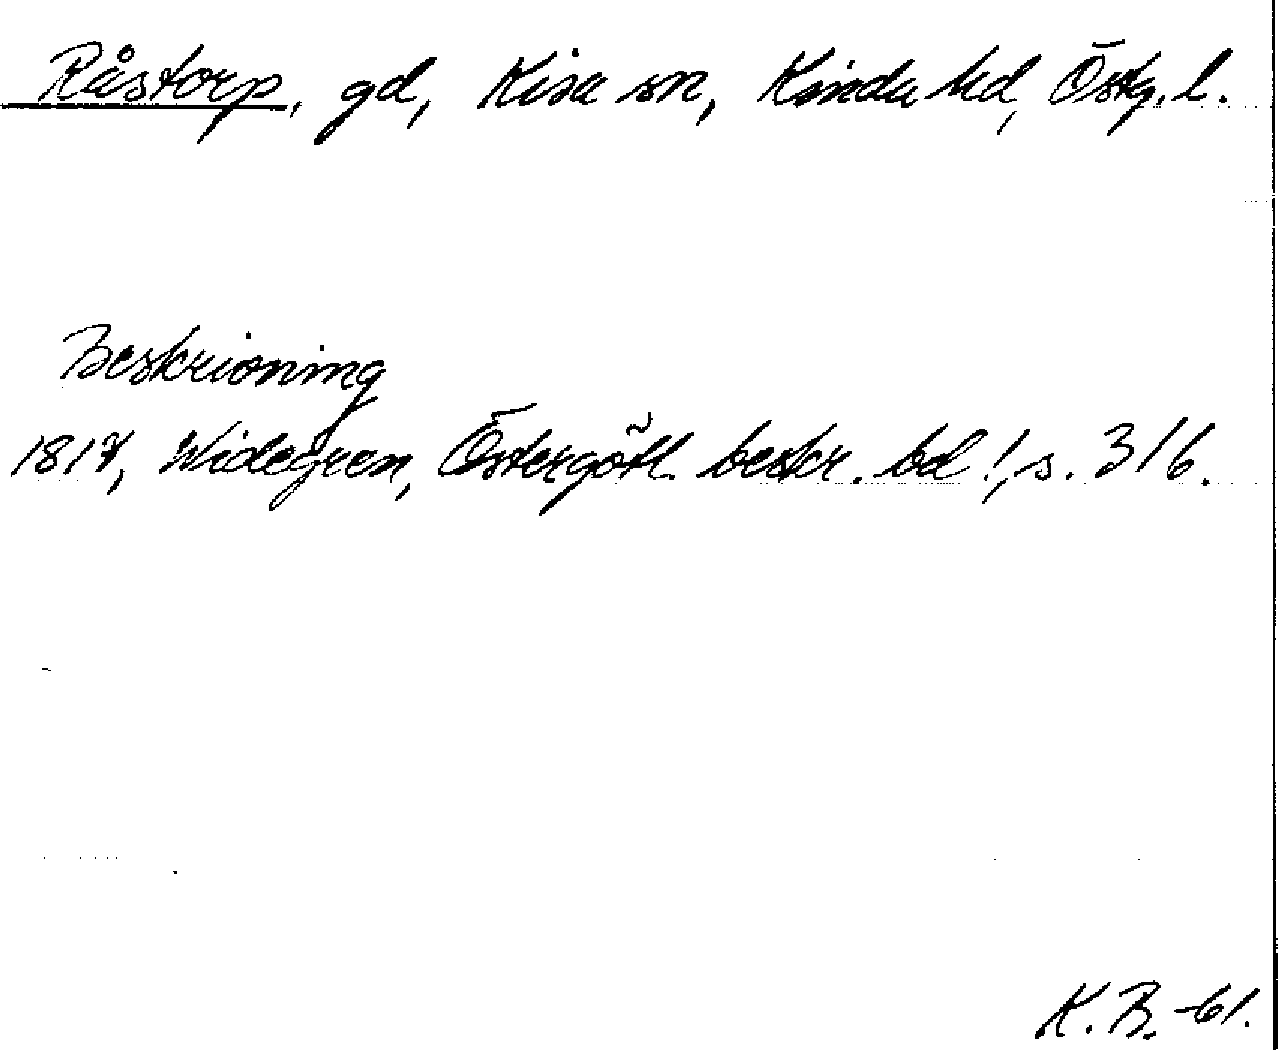 Råstorp, gd, Kisa sn, Kinda hd, Östg. l.
Beskrivning
1817, Widegren, Östergötl. beskr. bd 1, s. 316.
K. B. -61.